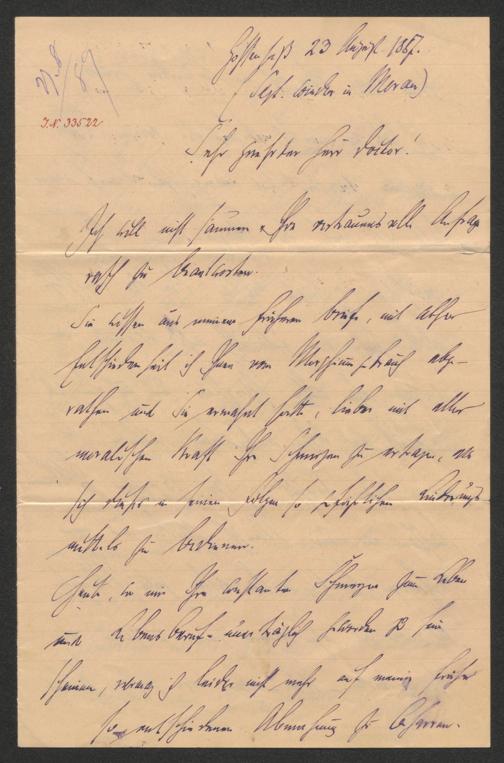 27/8 89
I.N. 33522
Gossensaß 23 August 1887.
(Sept. wieder in Meran)
Sehr geehrter Herr Doctor!
Ich will nicht säumen Ihre vertrauensvolle Anfrage
rasch zu beantworten.
Sie wissen aus meinem früheren Briefe, mit
Entschiedenheit ich Ihnen vom Morphiumgebrauch abge-
rathen und Sie ermahnt hatte, lieber mit aller
moralischen Kraft Ihre Schmerzen zu ertragen, als
sich dieses in seinen Folgen so gefährlichen Linderungs-
mittels zu bedienen.
Heute, wo mir Ihre constanten Schmerzen zum Leben
und Lebensberuf unerträglich geworden zu sein
scheinen, vermag ich leider nicht mehr auf meiner früher
so entschiedenen Abmahnung zu beharren.